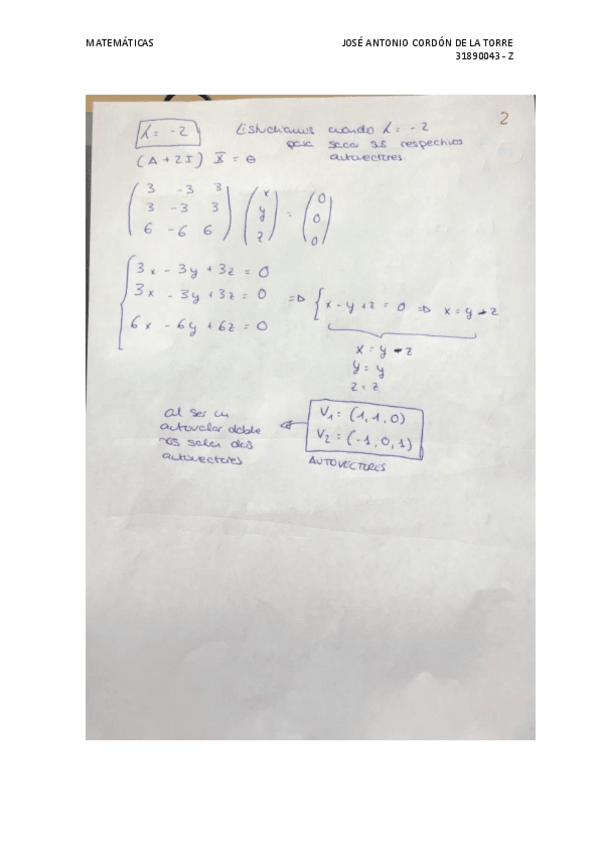 MATEMÁTICAS JOSÉ ANTONIO CORDÓN DE LA TORRE
31890043 - Z
2
λ = -2 Estudiamos cuando λ = -2
para sacar sus respectivos
autovectores
(A + 2I) X̄ = θ
( 3 -3 3 ) ( x ) ( 0 )
( 3 -3 3 ) ( y ) = ( 0 )
( 6 -6 6 ) ( z ) ( 0 )
3x - 3y + 3z = 0
3x - 3y + 3z = 0 => { x - y + z = 0 => x = y - z
6x - 6y + 6z = 0
x = y - z
y = y
z = z
al ser un
autovalor doble
nos salen dos
autovectores
V₁ = (1, 1, 0)
V₂ = (-1, 0, 1)
AUTOVECTORES